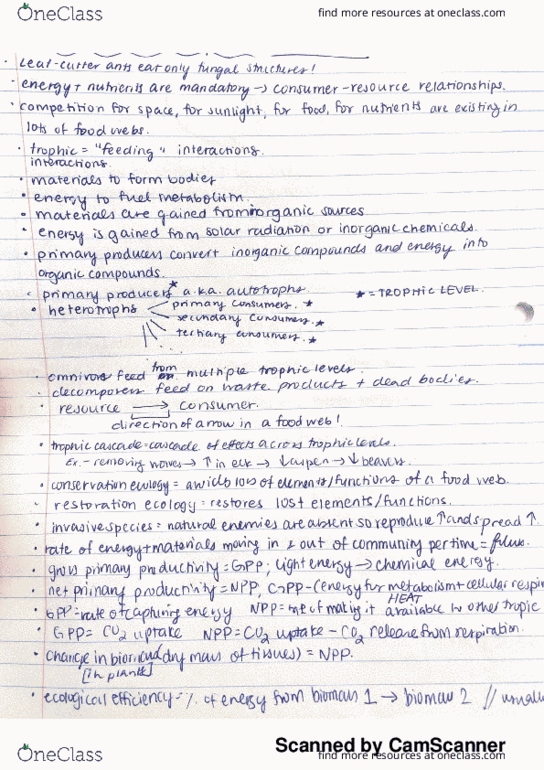 OneClass
find more resources at oneclass.com
· Leaf-cutter ants eat only fungal structures!
· energy + nutrients are mandatory → consumer-resource relationships.
· competition for space, for sunlight, for food, for nutrients are existing in
lots of food webs.
· trophic = "feeding" interactions.
interactions.
· materials to form bodies
· energy to fuel metabolism.
· materials are gained from inorganic sources
· energy is gained from solar radiation or inorganic chemicals.
· primary producers convert inorganic compounds and energy into
organic compounds.
· primary producers* a.k.a. autotrophs. * = TROPHIC LEVEL.
· heterotrophs primary consumers. *
secondary consumers. *
tertiary consumers. *
· omnivors feed from multiple trophic levels.
· decomposers feed on waste products + dead bodies.
· resource → consumer.
direction of arrow in a food web!
· trophic cascade - cascade of effects across trophic levels.
Ex. - removing wolves → ↑ in elk → ↓ aspen → ↓ beavers
· conservation ecology = avoids loss of elements/functions of a food web.
· restoration ecology = restores lost elements/functions.
· invasive species = natural enemies are absent so reproduce ↑ and spread ↑.
· rate of energy + materials moving in & out of community per time = flux.
· gross primary productivity = GPP; light energy → chemical energy.
· net primary productivity = NPP, GPP - (energy for metabolism + cellular respir
HEAT
· GPP = rate of capturing energy NPP = rate of making it available to other tropic
· GPP = CO2 uptake NPP = CO2 uptake - CO2 release from respiration.
· change in biomass (dry mass of tissues) = NPP.
[in plants]
· ecological efficiency = % of energy from biomass 1 → biomass 2 // usually
Scanned by CamScanner
OneClass
find more resources at oneclass.com